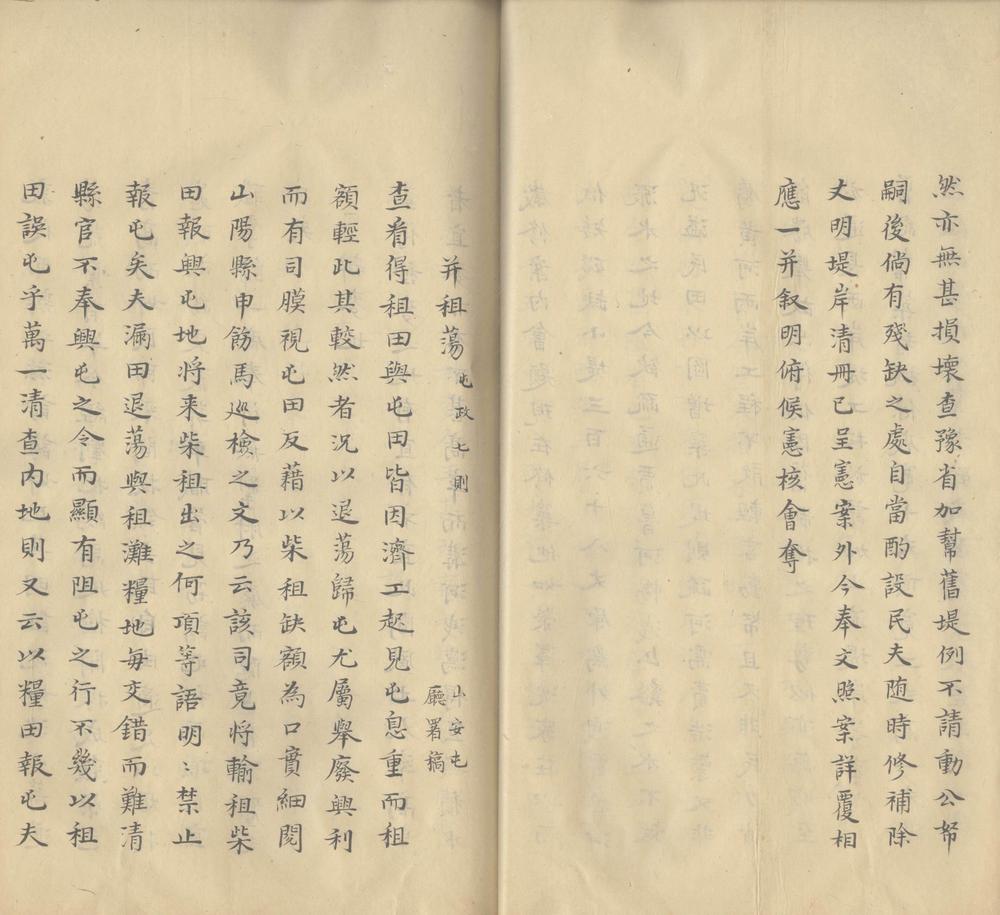 然亦無甚損壞查豫省加幫舊堤例不請動公帑
嗣後倘有殘缺之處自當酌設民夫随時修補除
丈明堤岸清冊已呈憲案外今奉文照案詳覆相
應一并叙明俯候憲核會奪
并租蕩 屯政七則 山安屯廳署稿
查看得租田與屯田皆因濟工起見屯息重而租
額輕此其較然者況以退蕩歸屯尤屬舉廢興利
而有司膜視屯田反藉以柴租缺額為口實細閱
山陽縣申飭馬巡檢之文乃云該司竟將輸租柴
田報興屯地将来柴租出之何項等語明〻禁止
報屯矣夫漏田退蕩與租灘糧地每交錯而難清
縣官不奉興屯之令而顯有阻屯之行不幾以租
田誤屯乎萬一清查内地則又云以糧田報屯夫